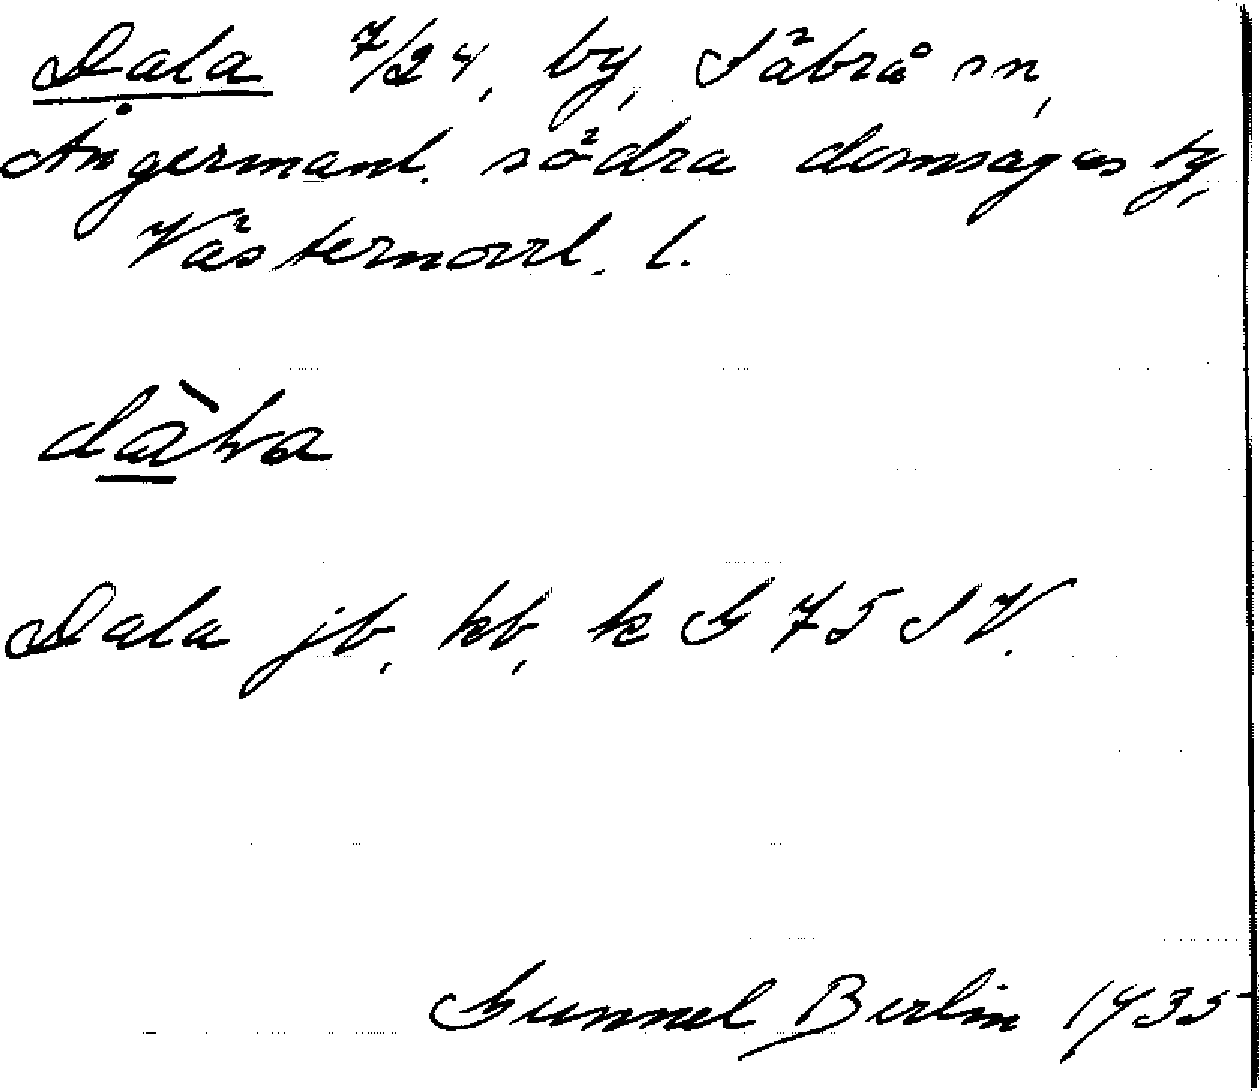 Dala 7/24, by, Säbrå sn,
Ångermanl. södra domsagas tg,
Västernorrl. l.
Dala jb, kb, k G 75 S V.
Gunnel Berlin 1935